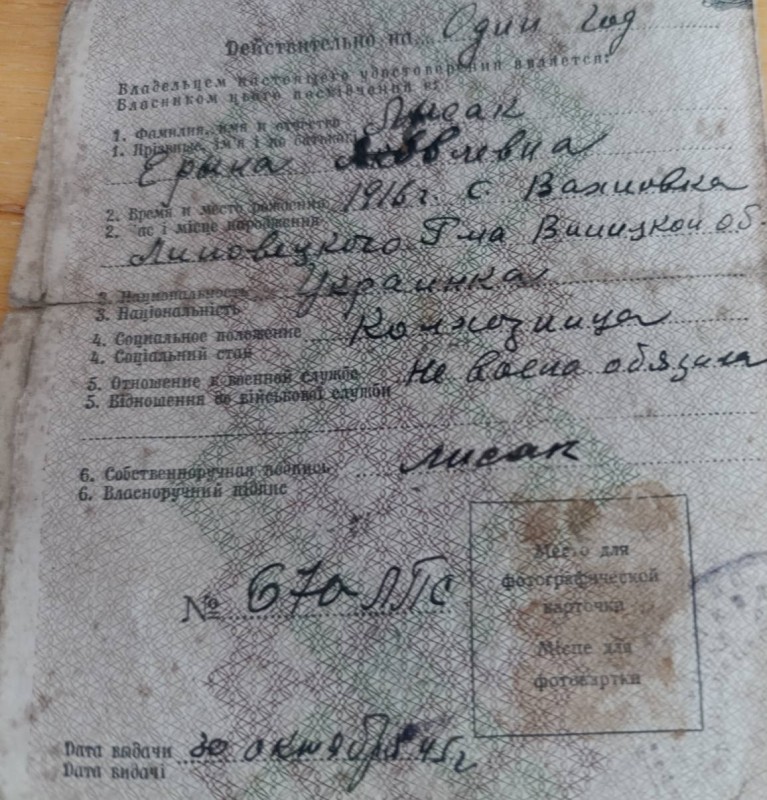 Действительно на Один год
Владельцем настоящего удостоверения является:
Власником цього посвідчення є:
1. Фамилия, имя и отчество Лисак
1. Прізвище, ім'я і по батькові
Ерына Яковлевна
2. Время и место рождения 1916 г. с. Вахновка
2. Час і місце народження
Липовецкого Р-на Виницкой об-
3. Национальность Украинка
3. Національність
4. Социальное положение Колхозница
4. Соціальний стан
5. Отношение к военной службе Не воено обязана
5. Відношення до військової служби
6. Собственноручная подпись Лисак
6. Власноручний підпис
№
Место для
фотографической
карточки
Місце для
фотокартки
Дата выдачи 30 октября 45 г
Дата видачі